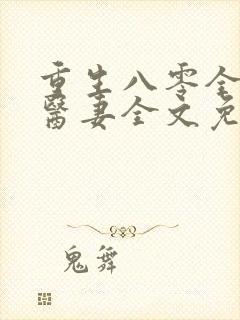 重生八零全
醫妻全文免
鬼舞